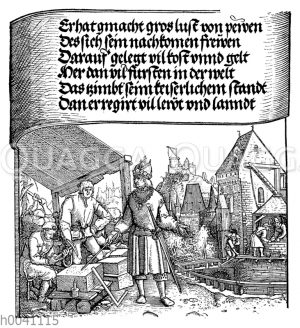 Er hat gmacht gros lust von pewen
Des sich sein nachkomen frewen
Darauf gelegt vil kost vnnd gelt
Mer dan vil fursten in der welt
Das zimbt seim keiserlichem standt
Dan er regirt vil lewt vnd lanndt
QUAGGA
h0041115